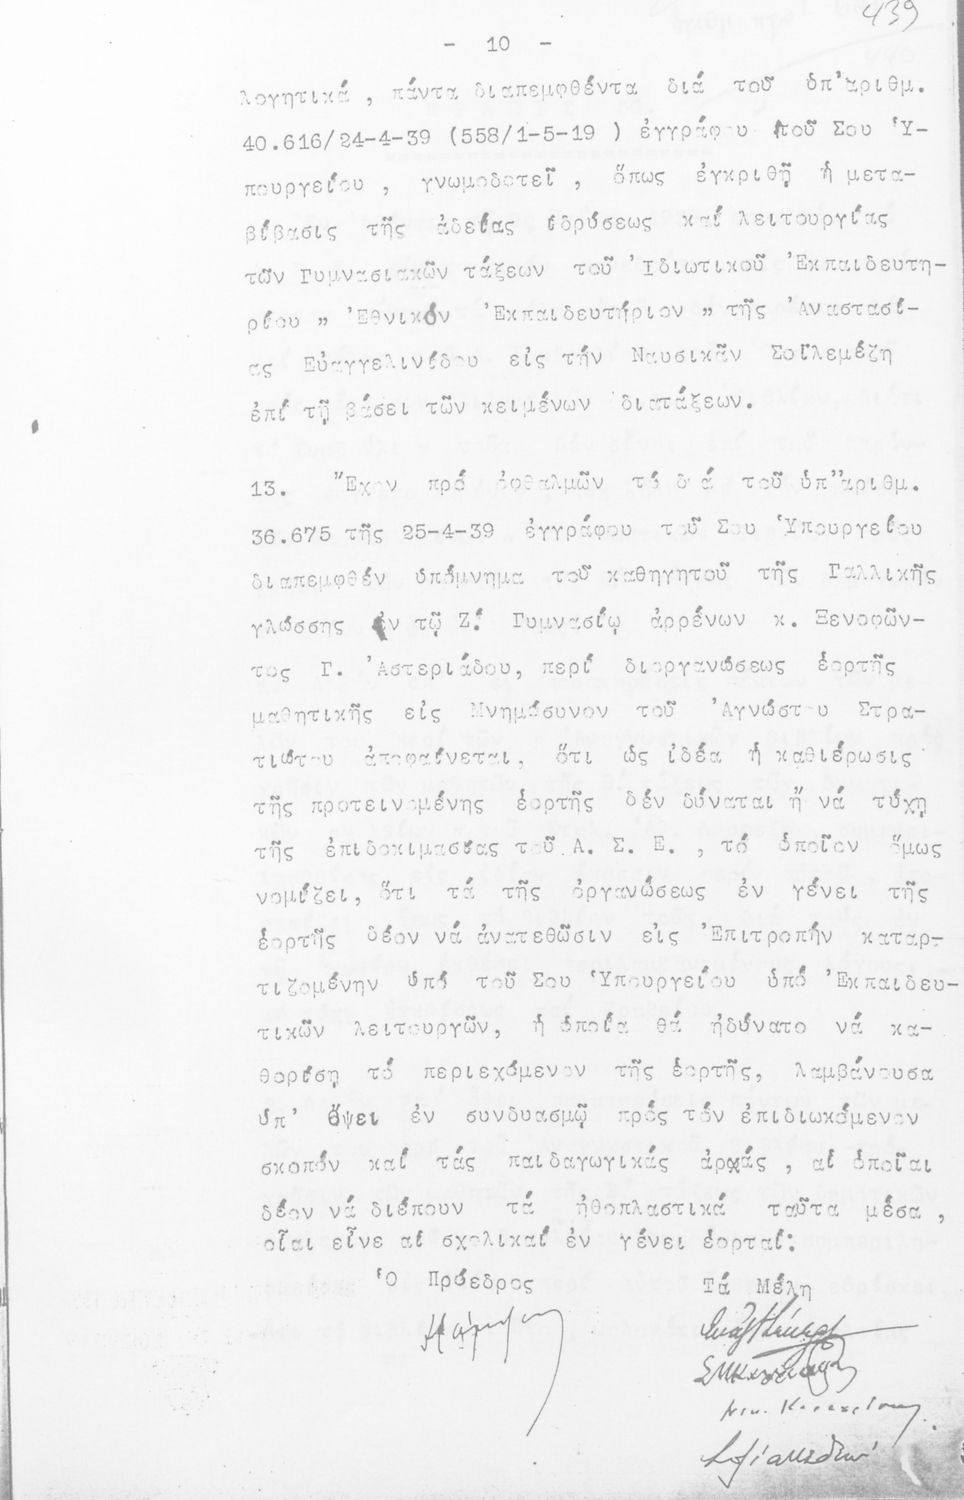 439
- 10 -
λογητικά , πάντα διαπεμφθέντα διά τοῦ ὑπ'ἀριθμ.
40.616/24-4-39 (558/1-5-19 ) ἐγγράφου τοῦ Σου Ὑ-
πουργείου , γνωμοδοτεῖ , ὅπως ἐγκριθῇ ἡ μετα-
βίβασις τῆς ἀδείας ἱδρύσεως καί λειτουργίας
τῶν Γυμνασιακῶν τάξεων τοῦ Ἰδιωτικοῦ Ἐκπαιδευτη-
ρίου " Ἐθνικόν Ἐκπαιδευτήριον " τῆς Ἀναστασί-
ας Εὐαγγελινίδου εἰς τήν Ναυσικᾶν Σοϊλεμέζη
ἐπί τῇ βάσει τῶν κειμένων διατάξεων.
13. Ἔχον πρό ὀφθαλμῶν τό διά τοῦ ὑπ'ἀριθμ.
36.675 τῆς 25-4-39 ἐγγράφου τοῦ Σου Ὑπουργείου
διαπεμφθέν ὑπόμνημα τοῦ καθηγητοῦ τῆς Γαλλικῆς
γλώσσης ἐν τῷ Ζ! Γυμνασίῳ ἀρρένων κ. Ξενοφῶν-
τος Γ. Ἀστεριάδου, περί διοργανώσεως ἑορτῆς
μαθητικῆς εἰς Μνημόσυνον τοῦ Ἀγνώστου Στρα-
τιώτου ἀποφαίνεται, ὅτι ὡς ἰδέα ἡ καθιέρωσις
τῆς προτεινομένης ἑορτῆς δέν δύναται ἤ νά τύχῃ
τῆς ἐπιδοκιμασίας τοῦ Α. Σ. Ε. , τό ὁποῖον ὅμως
νομίζει, ὅτι τά τῆς ὀργανώσεως ἐν γένει τῆς
ἑορτῆς δέον νά ἀνατεθῶσιν εἰς Ἐπιτροπήν καταρ-
τιζομένην ὑπό τοῦ Σου Ὑπουργείου ὑπό Ἐκπαιδευ-
τικῶν λειτουργῶν, ἡ ὁποία θά ἠδύνατο νά κα-
θορίσῃ τό περιεχόμενον τῆς ἑορτῆς, λαμβάνουσα
ὑπ' ὄψει ἐν συνδυασμῷ πρός τόν ἐπιδιωκόμενον
σκοπόν καί τάς παιδαγωγικάς ἀρχάς , αἱ ὁποῖαι
δέον νά διέπουν τά ἠθοπλαστικά ταῦτα μέσα ,
οἷαι εἶνε αἱ σχολικαί ἐν γένει ἑορταί:
Ὁ Πρόεδρος Τά Μέλη